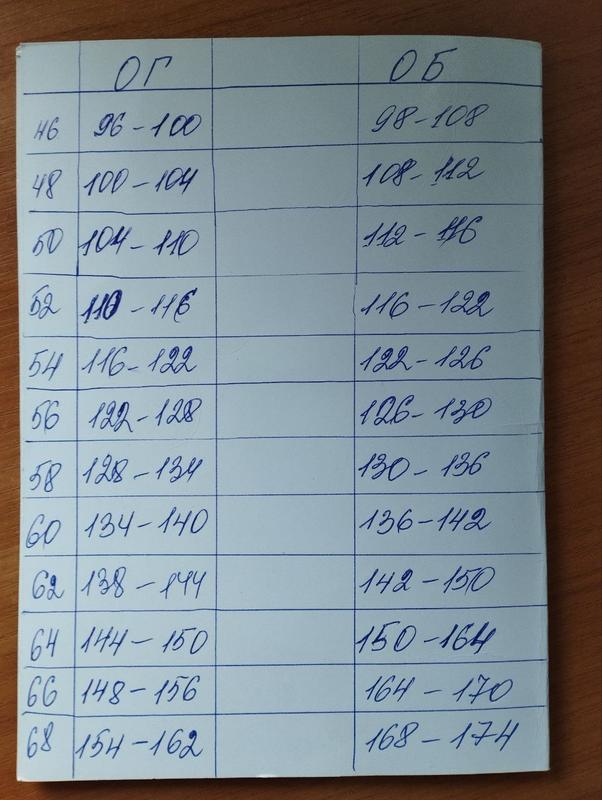 ОГ ОБ
46 96-100 98-108
48 100-104 108-112
50 104-110 112-116
52 110-116 116-122
54 116-122 122-126
56 122-128 126-130
58 128-134 130-136
60 134-140 136-142
62 138-144 142-150
64 144-150 150-164
66 148-156 164-170
68 154-162 168-174